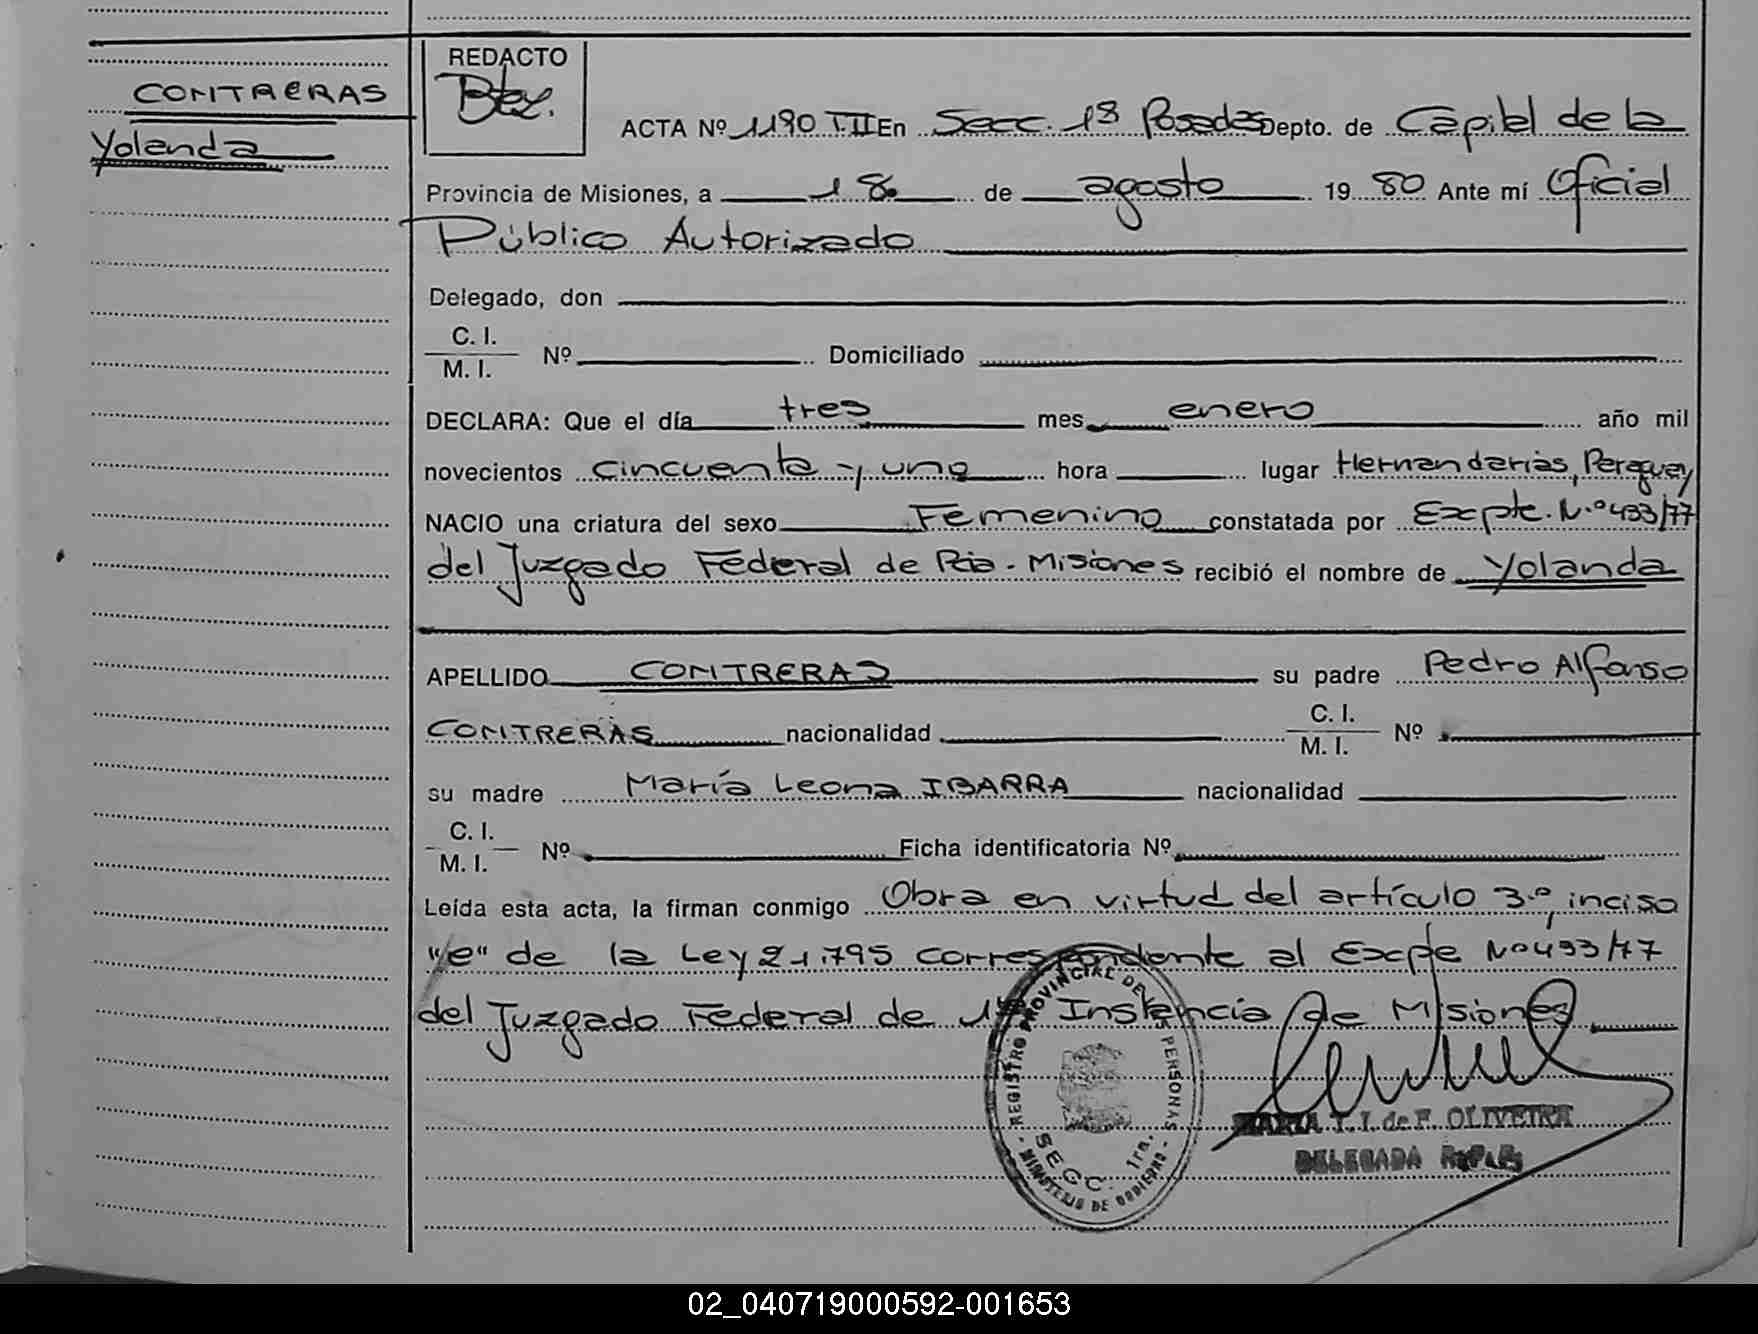 CONTRERAS
Yolanda
REDACTO
ACTA Nº 1190 T.II En Secc. 1ª Posadas Depto. de Capital de la
Provincia de Misiones, a 18 de agosto 1980 Ante mí Oficial
Público Autorizado
Delegado, don
C. I.
M. I. Nº Domiciliado
DECLARA: Que el día tres mes enero año mil
novecientos cincuenta y uno hora lugar Hernandarias, Paraguay
NACIO una criatura del sexo Femenino constatada por Expte. N.º 493/77
del Juzgado Federal de Pcia. Misiones recibió el nombre de Yolanda
APELLIDO CONTRERAS su padre Pedro Alfonso
CONTRERAS nacionalidad C. I. M. I. Nº
su madre María Leona IBARRA nacionalidad
C. I.
M. I. Nº Ficha identificatoria Nº
Leída esta acta, la firman conmigo Obra en virtud del artículo 3.º, inciso
"e" de la Ley 21.795 correspondiente al Expte Nº 493/77
del Juzgado Federal de 1ª Instancia de Misiones
REGISTRO PROVINCIAL DE LAS PERSONAS
SECC. 1ra.
MINISTERIO DE GOBIERNO
MARIA T. I. de F. OLIVEIRA
DELEGADA
02_040719000592-001653